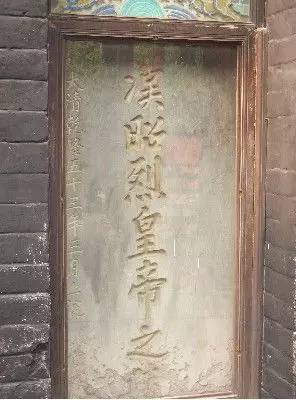 漢昭烈皇帝之
大清乾隆五十三年二月